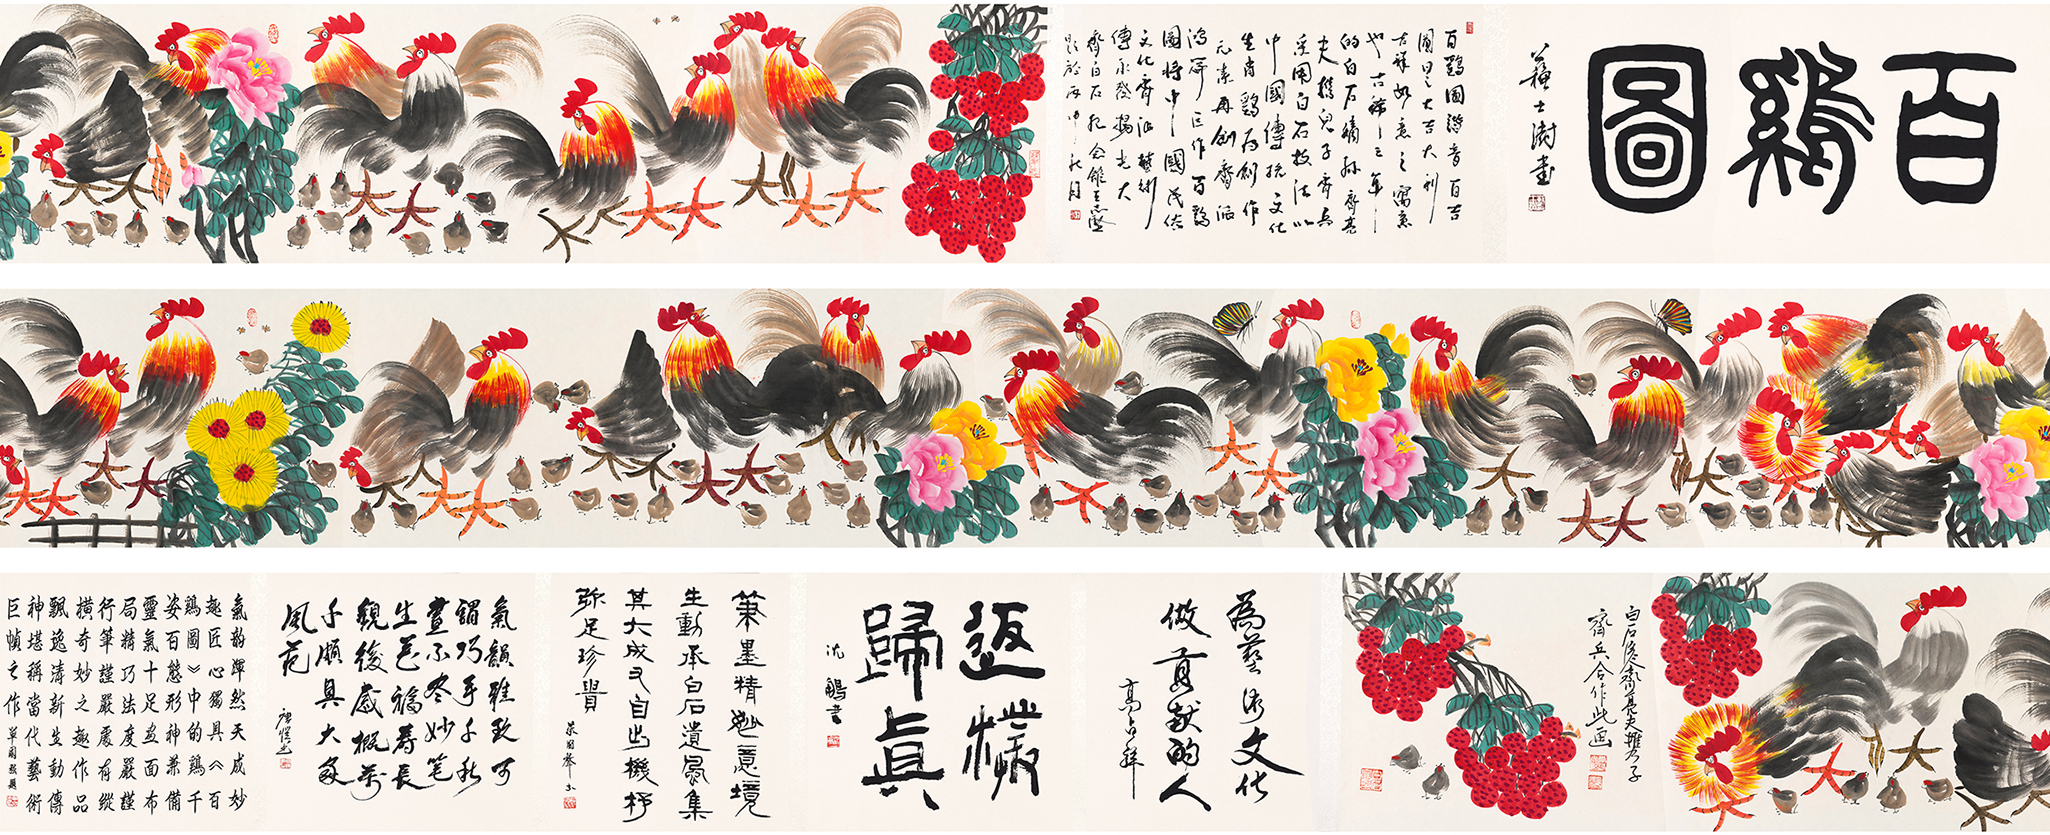 百鷄圖
蘇士澍書
百鷄圖諧音百吉
圖曰之大吉大利
吉祥如意之寓意
也古稀之三年
的白石嫡孫齊亮
夫攜兒子齊兵
采用白石技法以
中國傳統文化
生肖鷄为創作
元素再創齊派
鴻篇巨作百鷄
圖將中國民俗
文化齊派藝術
傳承發揚光大
齊白石紀念館王志堅
題於丙申秋月
白石後人齊亮夫攜子
齊兵合作此画
為藝術文化
做貢獻的人
高占祥
返樸
歸真
沈鵬書
筆墨精逸意境
生動承白石遺風集
其大成又自出機杼
弥足珍貴
氣韻雅致可
謂巧手千秋
畫不盡妙笔
生花福壽長
觀後感概萬
千頗具大家
風范
氣韵渾然天成妙
趣匠心獨具《百
鷄圖》中的鷄千
姿百態形神兼備
靈氣十足画面布
局精巧法度嚴謹
行筆謹嚴處有縱
橫奇妙之趣作品
飄逸清新生動傳
神堪稱當代藝術
巨幀之作
單國強題